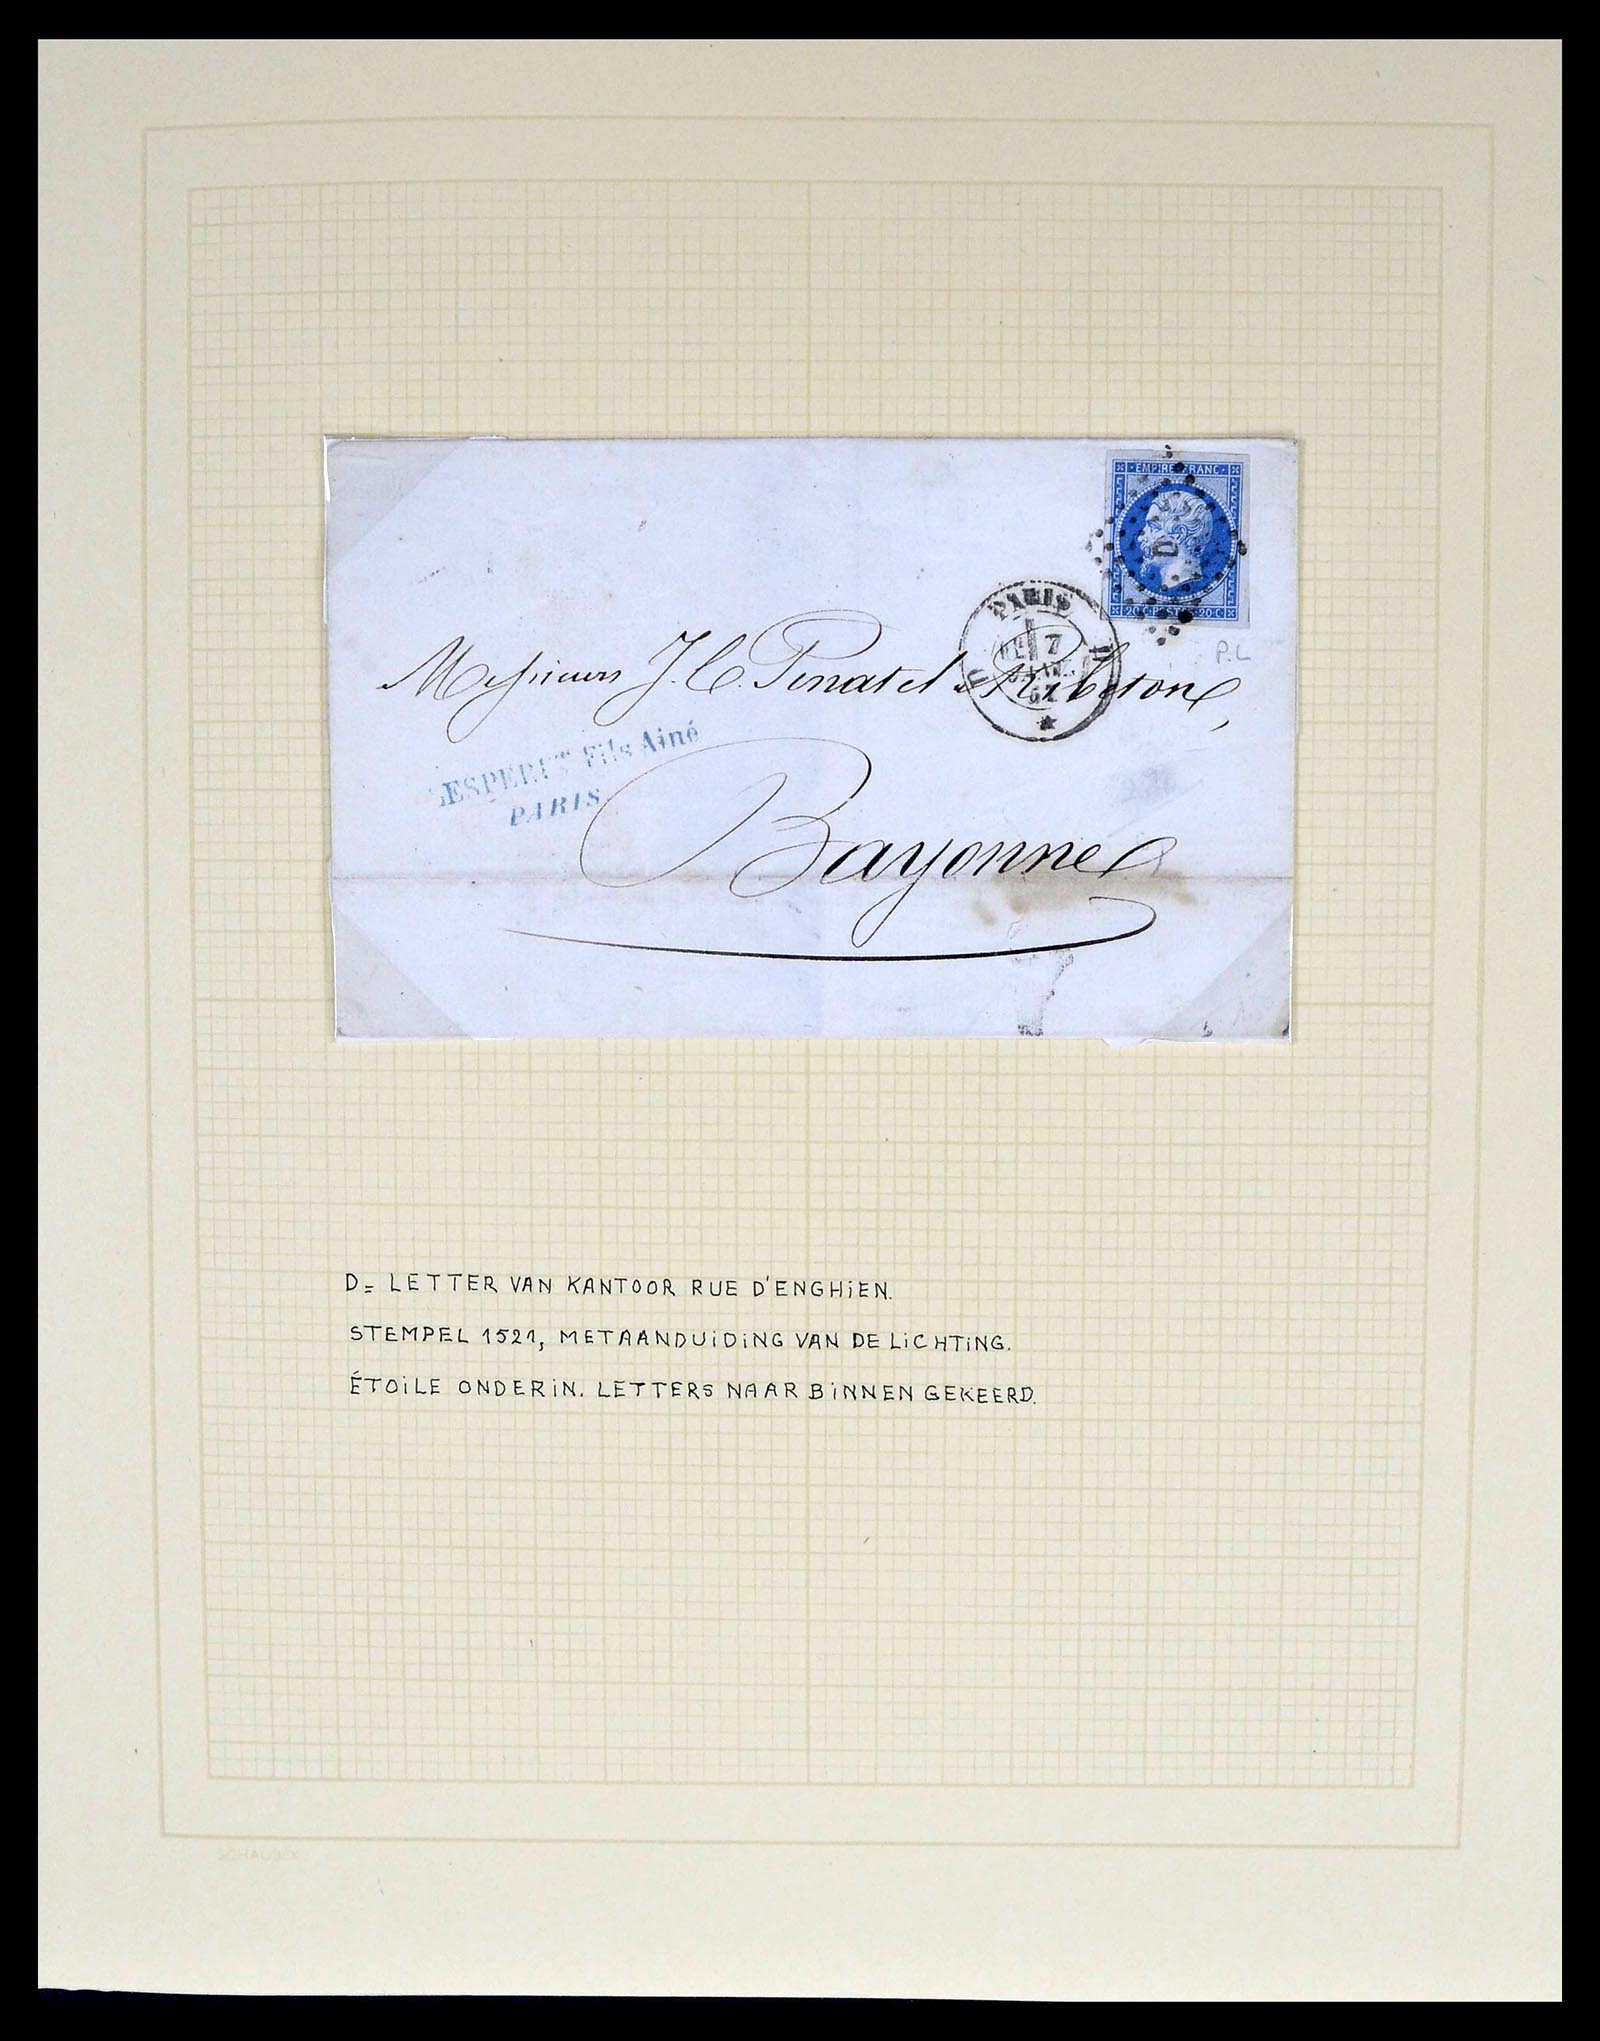 EMPIRE FRANC
D
20 C. POSTES 20 C
PARIS
7
JANV.
57
D
P.L
Messieurs J. C. Ribeton,
LESPERUT Fils Ainé
PARIS
Bayonne
D= LETTER VAN KANTOOR RUE D'ENGHIEN.
STEMPEL 1521, METAANDUIDING VAN DE LICHTING.
ÉTOILE ONDERIN. LETTERS NAAR BINNEN GEKEERD.
SCHAUBEK